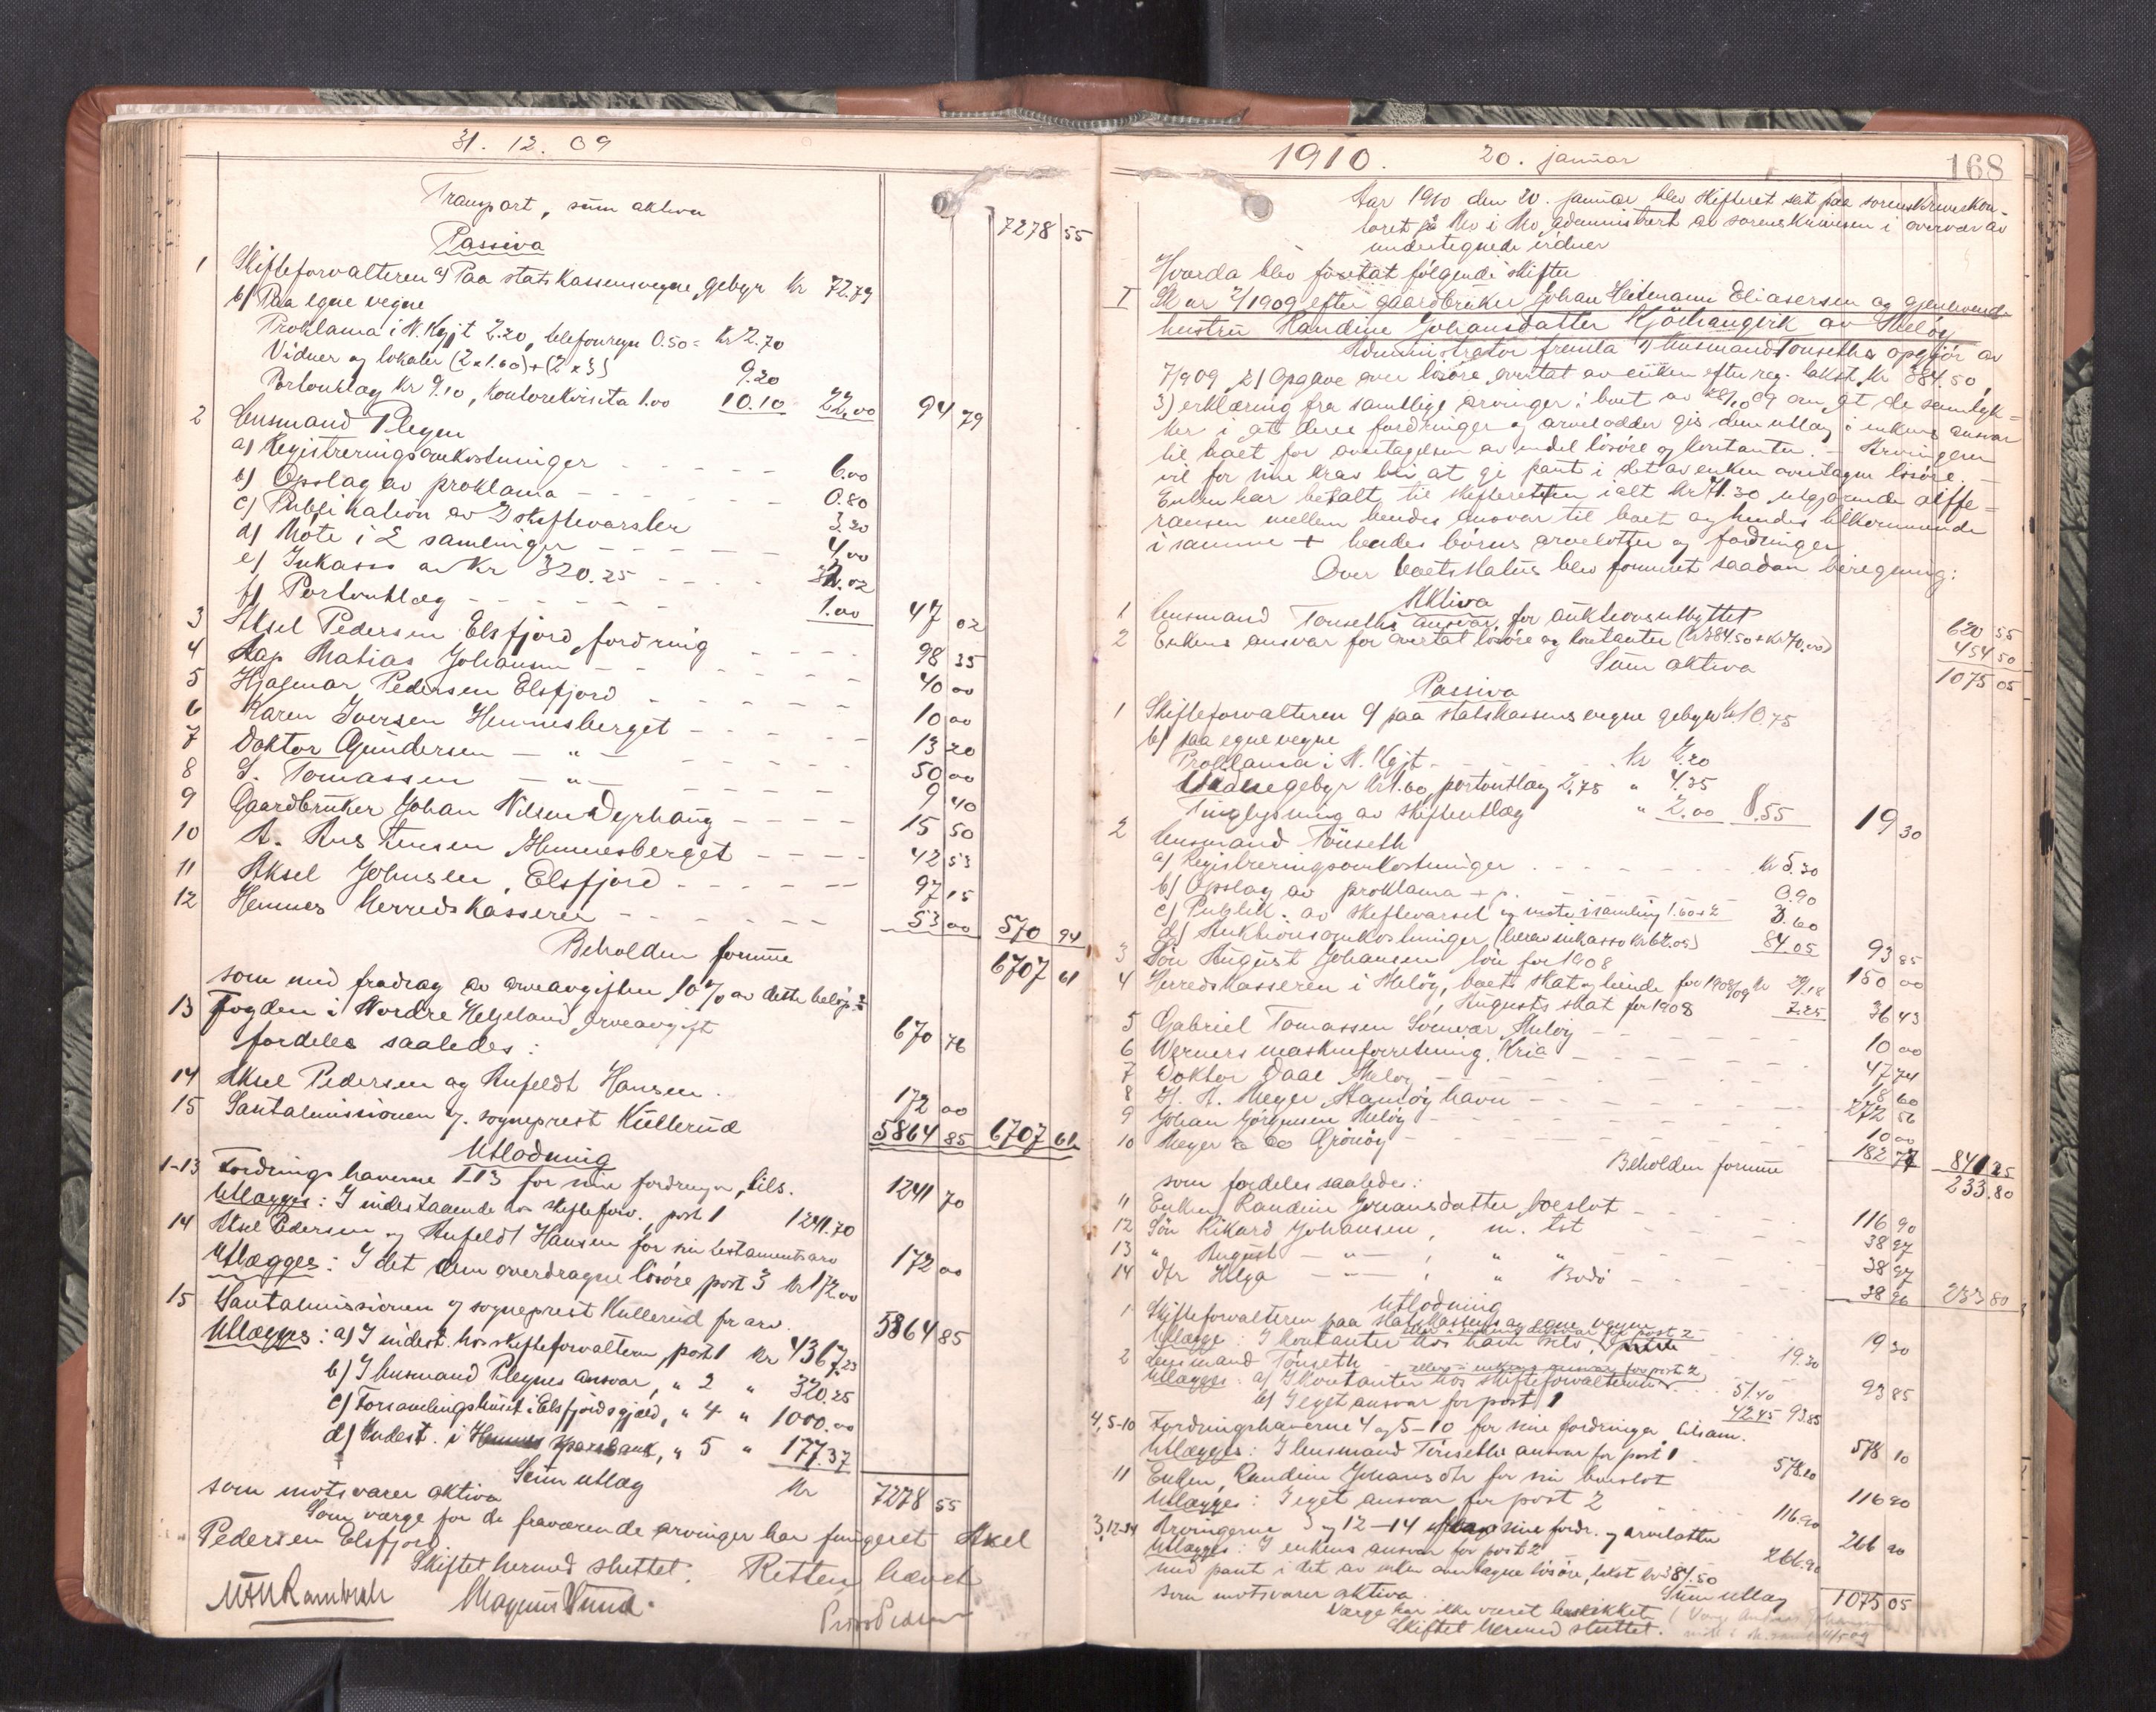 31. 12. 09
Transport, sum aktiva 7278 55
Passiva
1 Skifteforvalteren a) Paa statskassens vegne, gebyr Kr 72.79
b) Paa egne vegne
Proklama i N. Kgjt 2.20, telefonregn 0.50 = Kr 2.70
Vidner og lokaler (2 x 1.60) + (2 x 3) 9.20
Portoutlag Kr 9.10, Kontorekvisita 1.00 10.10 22,00 94 79
2 Lensmand Plegen
a) Registreringsomkostninger 6.00
b) Opslag av proklama 0.80
c) Publikation av 2 skiftevarsler 3.20
d) Møte i 2 samlinger 4,00
e) Inkasso av Kr 320.25 32.02
f) Portoutlæg 1.00 47 02
3 Aksel Pedersen Elsfjord, fordring 98 35
4 Kap Matias Johansen 40 00
5 Hjalmar Pedersen Elsfjord 10 00
6 Karen Iversen Hemnesberget 13 20
7 Doktor Gundersen — " — 50 00
8 S. Tomassen — " — 9 40
9 Gaardbruker Johan Nilsen Dyrhaug 15 50
10 A. Austensen Hemnesberget 42 53
11 Aksel Johnsen, Elsfjord 97 15
12 Hemnes Herredskasserer 53 00 570 94
Beholden formue 6707 61
som med fradrag av arveavgiften 10 % av dette beløp
13 Fogden i Nordre Helgeland arveavgift 670 76
fordeles saaledes:
14 Aksel Pedersen og Anfeldt Hansen. 172 00
15 Santalmissionen v. sogneprest Kullerud 5864 85 6707 61
Utlodning
1-13 Fordringshaverne 1-13 for sine fordringer, tils. 1241 70
Utlægges: I indestaaende hos skifteforv., post 1 1241.70
14 Aksel Pedersen og Anfeldt Hansen for sin testamentsarv 172 00
Utlægges: I det dem overdragne løsøre post 3 kr 172.00
15 Santalmissionen v sogneprest Kullerud for arv. 5864 85
Utlægges: a) I indest. hos skifteforvalteren post 1 Kr 4367.23
b) I lensmand Plegens ansvar, " 2 " 320.25
c) Forsamlingshuset i Elsfjords gjæld, " 4 " 1000.00
d) Indest. i Hemnes sparebank, " 5 " 177.37
Sum utlæg Kr 7278 55
som motsvarer aktiva
Som værge for de fraværende arvinger har fungeret Aksel
Pedersen Elsfjord
Skiftet hermed sluttet. Retten hævet
Magnus Vund.
1910. 20. januar 168
Aar 1910 den 20. januar blev skifteret sat paa sorenskriverkon-
toret på Mo i Mo, administrert av sorenskriveren i overvær av
undertegnede vidner
Hvorda blev foretat følgende skifter
I Sk nr 2/1909 efter gaardbruker Johan Heitmann Eliasersen og gjenlevende
hustru Randine Johansdatter Kjørhaugvik av Meløy
Administrator fremla 1) lensmand Tønseths opgjør av
7/9 09 2) Opgave over løsøre overtat av enken efter reg. takst Kr 384.50,
3) erklæring fra samtlige arvinger i boet av 28/10 09 om, at de samtyk-
ker i at deres fordringer og arvelodder gis dem utlag i enkens ansvar
til boet for overtagelsen av endel løsøre og kontanter. – Arvingerne
vil for sine krav bli at gi pant i det av enken overtagne løsøre. –
Enken har betalt til skifteretten ialt kr 71.30 utgjørende diffe-
ransen mellem hendes ansvar til boet og hendes tilkommende
i samme + hendes børns arvelotter og fordringer
Over boets status blev formeret saadan beregning:
Aktiva
1 Lensmand Tønseths ansvar for auktionsutbyttet 620 55
2 Enkens ansvar for overtat løsøre og kontanter (kr 384.50 + Kr 70.00) 454 50
Sum aktiva 1075 05
Passiva
1 Skifteforvalteren a) paa statskassens vegne gebyr kr 10.75
b) paa egne vegne
Proklama i N. Kgjt. Kr 2.20
Vidnegebyr kr 1.60, portoutlag 2.75 " 4.35
Tinglysning av skifteutlæg " 2.00 8.55 19 30
2 Lensmand Tønseth
a) Registreringsomkostninger Kr 5.30
b) Opslag av proklama + p. 0.90
c) Publik. av skiftevarsel og møte i samling 1.60+2 3.60
d) Auktionsomkostninger (herav inkasso kr 62.05) 84.05 93 85
3 Søn August Johansen løn for 1908 150 00
4 Herredskasseren i Meløy, boets skat og hende for 1908/09 kr 29.18
, Augusts skat for 1908 7.25 36 43
5 Gabriel Tomassen Sørnvær Meløy 10 00
6 Werners maskinforretning, Kria 47 74
7 Doktor Daae Meløy 18 60
8 H. A. Meyer Hamsøyhavn 272 56
9 Johan Jørgensen Meløy 10 00
10 Meyer & Co Grønøy 182 77 841 25
Beholden formue 233.80
som fordeles saaledes:
11 Enken Randine Johansdatter, boeslot 116 90
12 Søn Rikard Johansen, m. tst 38 97
13 " August — " — , " " 38 97
14 Dtr Helga — " — , " Bodø 38 96 233 80
Utlodning
1 Skifteforvalteren paa statskassens og egne vegne 19 30
Utlægges: I kontanter hos ham selv eller i enkens ansvar for post 2 19.30
2 Lensmand Tønseth 93 85
Utlægges: a) I kontanter hos skifteforvalteren eller i enkens ansvar for post 2 51.40
b) I eget ansvar for post 1 42.45 93.85
4, 5-10 Fordringshaverne 4 og 5–10 for sine fordringer tilsam. 578 10
Utlægges: I lensmand Tønseths ansvar for post 1 578.10
11 Enken, Randine Johansdtr for sin boeslot 116 90
Utlægges: I eget ansvar for post 2 116.90
3, 12-14 Arvingerne 3 og 12–14 for sine fordr. og arvelotter 266 90
Utlægges: I enkens ansvar for post 2 266.90
med pant i det av enken overtagne løsøre, takst kr 384.50
Sum utlæg 1075 05
som motsvarer aktiva
Værge har ikke været beskikket
Skiftet hermed sluttet.